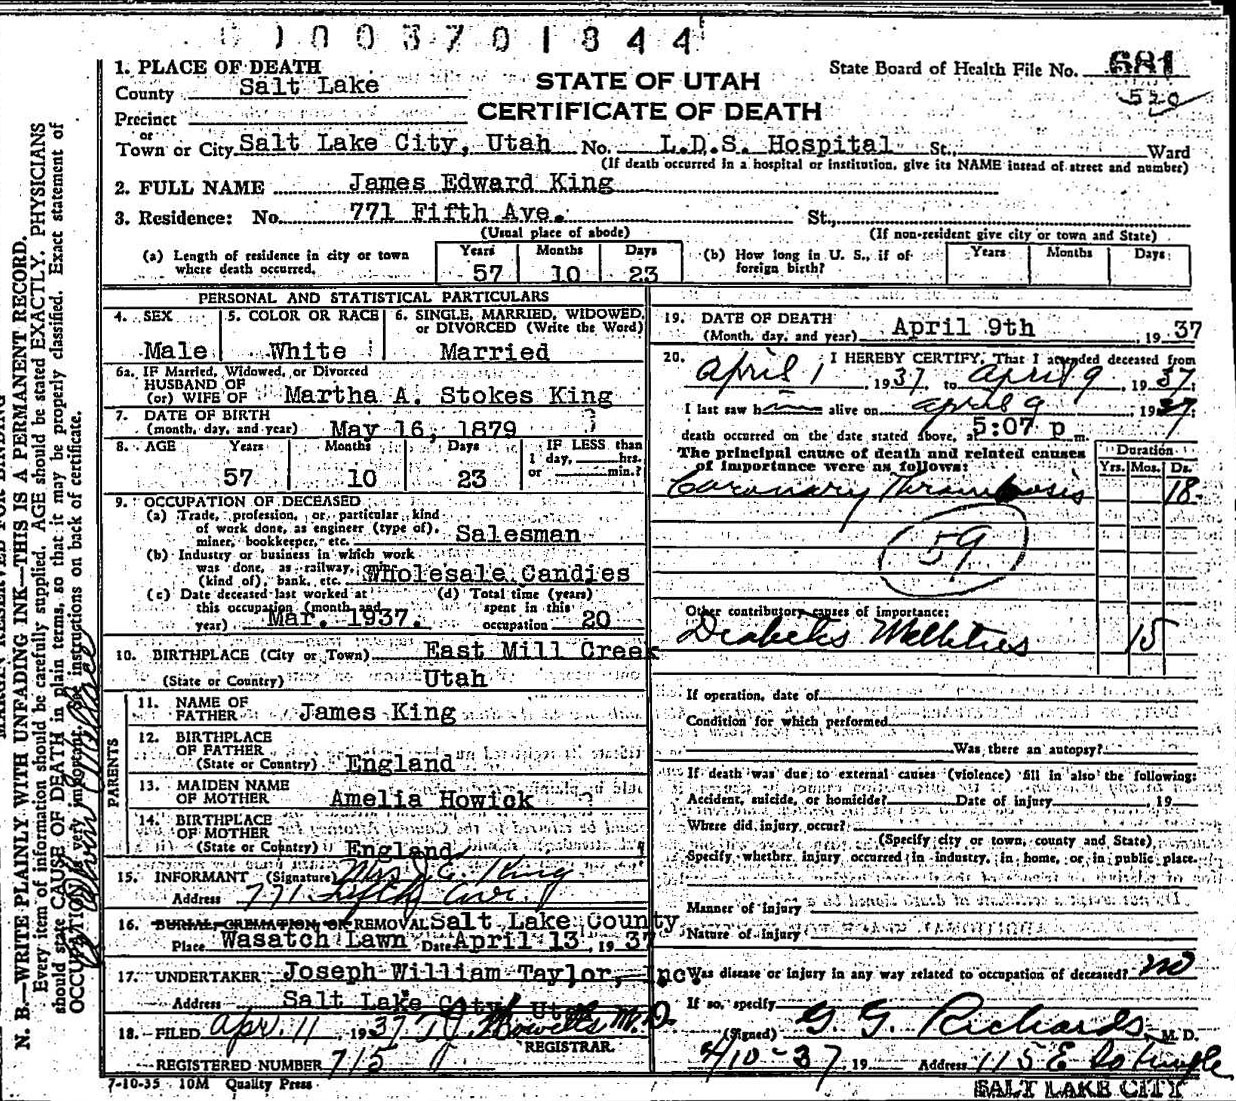 0003701844
1. PLACE OF DEATH
County Salt Lake
STATE OF UTAH
CERTIFICATE OF DEATH
State Board of Health File No. 681
520
Precinct
or
Town or City Salt Lake City, Utah No. L.D.S. Hospital St., Ward
(If death occurred in a hospital or institution, give its NAME instead of street and number)
2. FULL NAME James Edward King
3. Residence: No. 771 Fifth Ave. St.,
(Usual place of abode) (If non-resident give city or town and State)
(a) Length of residence in city or town where death occurred. Years 57 Months 10 Days 23
(b) How long in U. S., if of foreign birth? Years Months Days
PERSONAL AND STATISTICAL PARTICULARS
4. SEX Male
5. COLOR OR RACE White
6. SINGLE, MARRIED, WIDOWED, or DIVORCED (Write the Word) Married
6a. IF Married, Widowed, or Divorced
HUSBAND OF
(or) WIFE OF Martha A. Stokes King
7. DATE OF BIRTH
(month, day, and year) May 16, 1879
8. AGE Years 57 Months 10 Days 23 IF LESS than 1 day, hrs. or min.?
9. OCCUPATION OF DECEASED
(a) Trade, profession, or particular kind
of work done, as engineer (type of),
miner, bookkeeper, etc. Salesman
(b) Industry or business in which work
was done, as railway, mine
(kind of), bank, etc. Wholesale Candies
(c) Date deceased last worked at this occupation (month and year) Mar. 1937.
(d) Total time (years) spent in this occupation 20
10. BIRTHPLACE (City or Town) East Mill Creek
(State or Country) Utah
PARENTS
11. NAME OF
FATHER James King
12. BIRTHPLACE
OF FATHER
(State or Country) England
13. MAIDEN NAME
OF MOTHER Amelia Howick
14. BIRTHPLACE
OF MOTHER
(State or Country) England
15. INFORMANT (Signature) Mrs J. E. King
Address 771 Fifth Ave.
16. BURIAL, CREMATION, OR REMOVAL Salt Lake County
Place Wasatch Lawn Date April 13, 1937
17. UNDERTAKER Joseph William Taylor, Inc.
Address Salt Lake City, Utah
18. FILED Apr. 11, 1937 T.J. Howells M.D.
REGISTRAR.
REGISTERED NUMBER 715
7-10-35 10M Quality Press
19. DATE OF DEATH
(Month, day, and year) April 9th, 1937
20. I HEREBY CERTIFY, That I attended deceased from
April 1, 1937, to April 9, 1937;
I last saw him alive on April 9 1937
death occurred on the date stated above, at 5:07 p m.
The principal cause of death and related causes
of importance were as follows:
Duration
Yrs. Mos. Ds.
Coronary Thrombosis 18
59
Other contributory causes of importance:
Diabetes Mellitus 15
If operation, date of
Condition for which performed
Was there an autopsy?
If death was due to external causes (violence) fill in also the following:
Accident, suicide, or homicide? Date of injury, 19
Where did injury occur?
(Specify city or town, county and State)
Specify whether injury occurred in industry, in home, or in public place.
Manner of injury
Nature of injury
Was disease or injury in any way related to occupation of deceased? no
If so, specify
(Signed) G. G. Richards, M. D.
4/10-37, 19 Address 115 E So Temple
SALT LAKE CITY
MARGIN RESERVED FOR BINDING
N. B.—WRITE PLAINLY WITH UNFADING INK—THIS IS A PERMANENT RECORD.
Every item of information should be carefully supplied. AGE should be stated EXACTLY. PHYSICIANS
should state CAUSE OF DEATH in plain terms, so that it may be properly classified. Exact statement of
OCCUPATION is very important. See instructions on back of certificate.